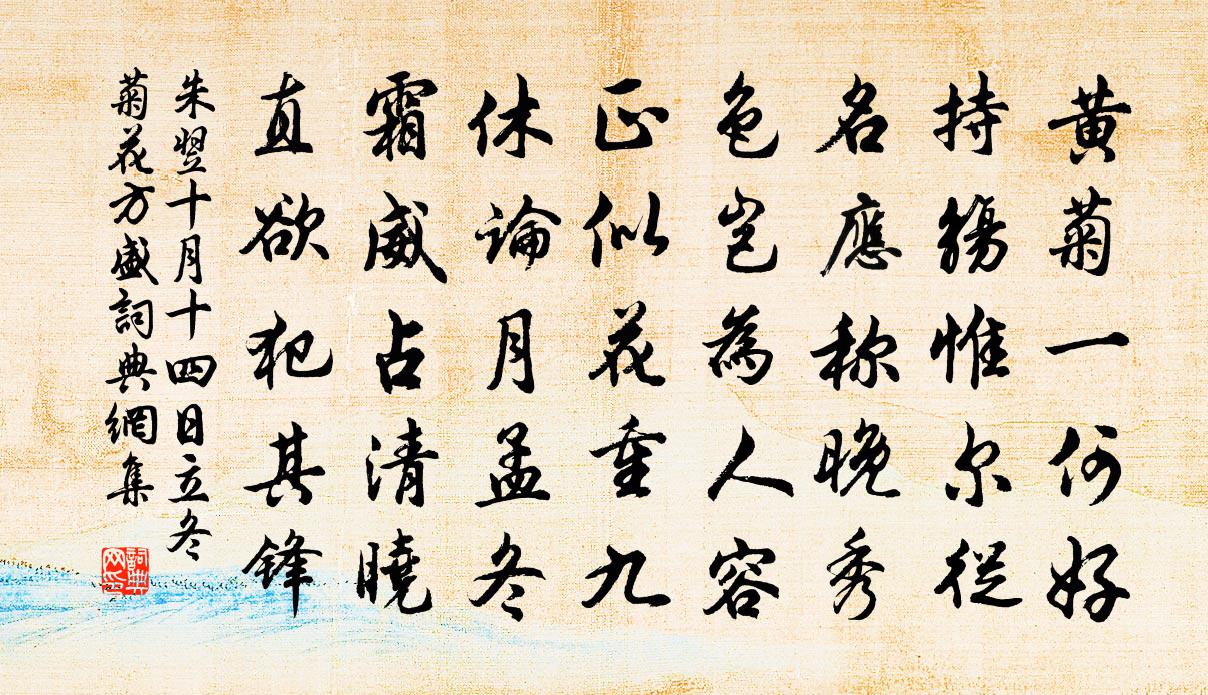 黄菊一何好
持觴惟尔從
名應称晚秀
色豈為人容
正似花重九
休論月孟冬
霜威占清曉
直欲犯其鋒
朱翌十月十四日立冬
菊花方盛詞典網集
詞典
网印